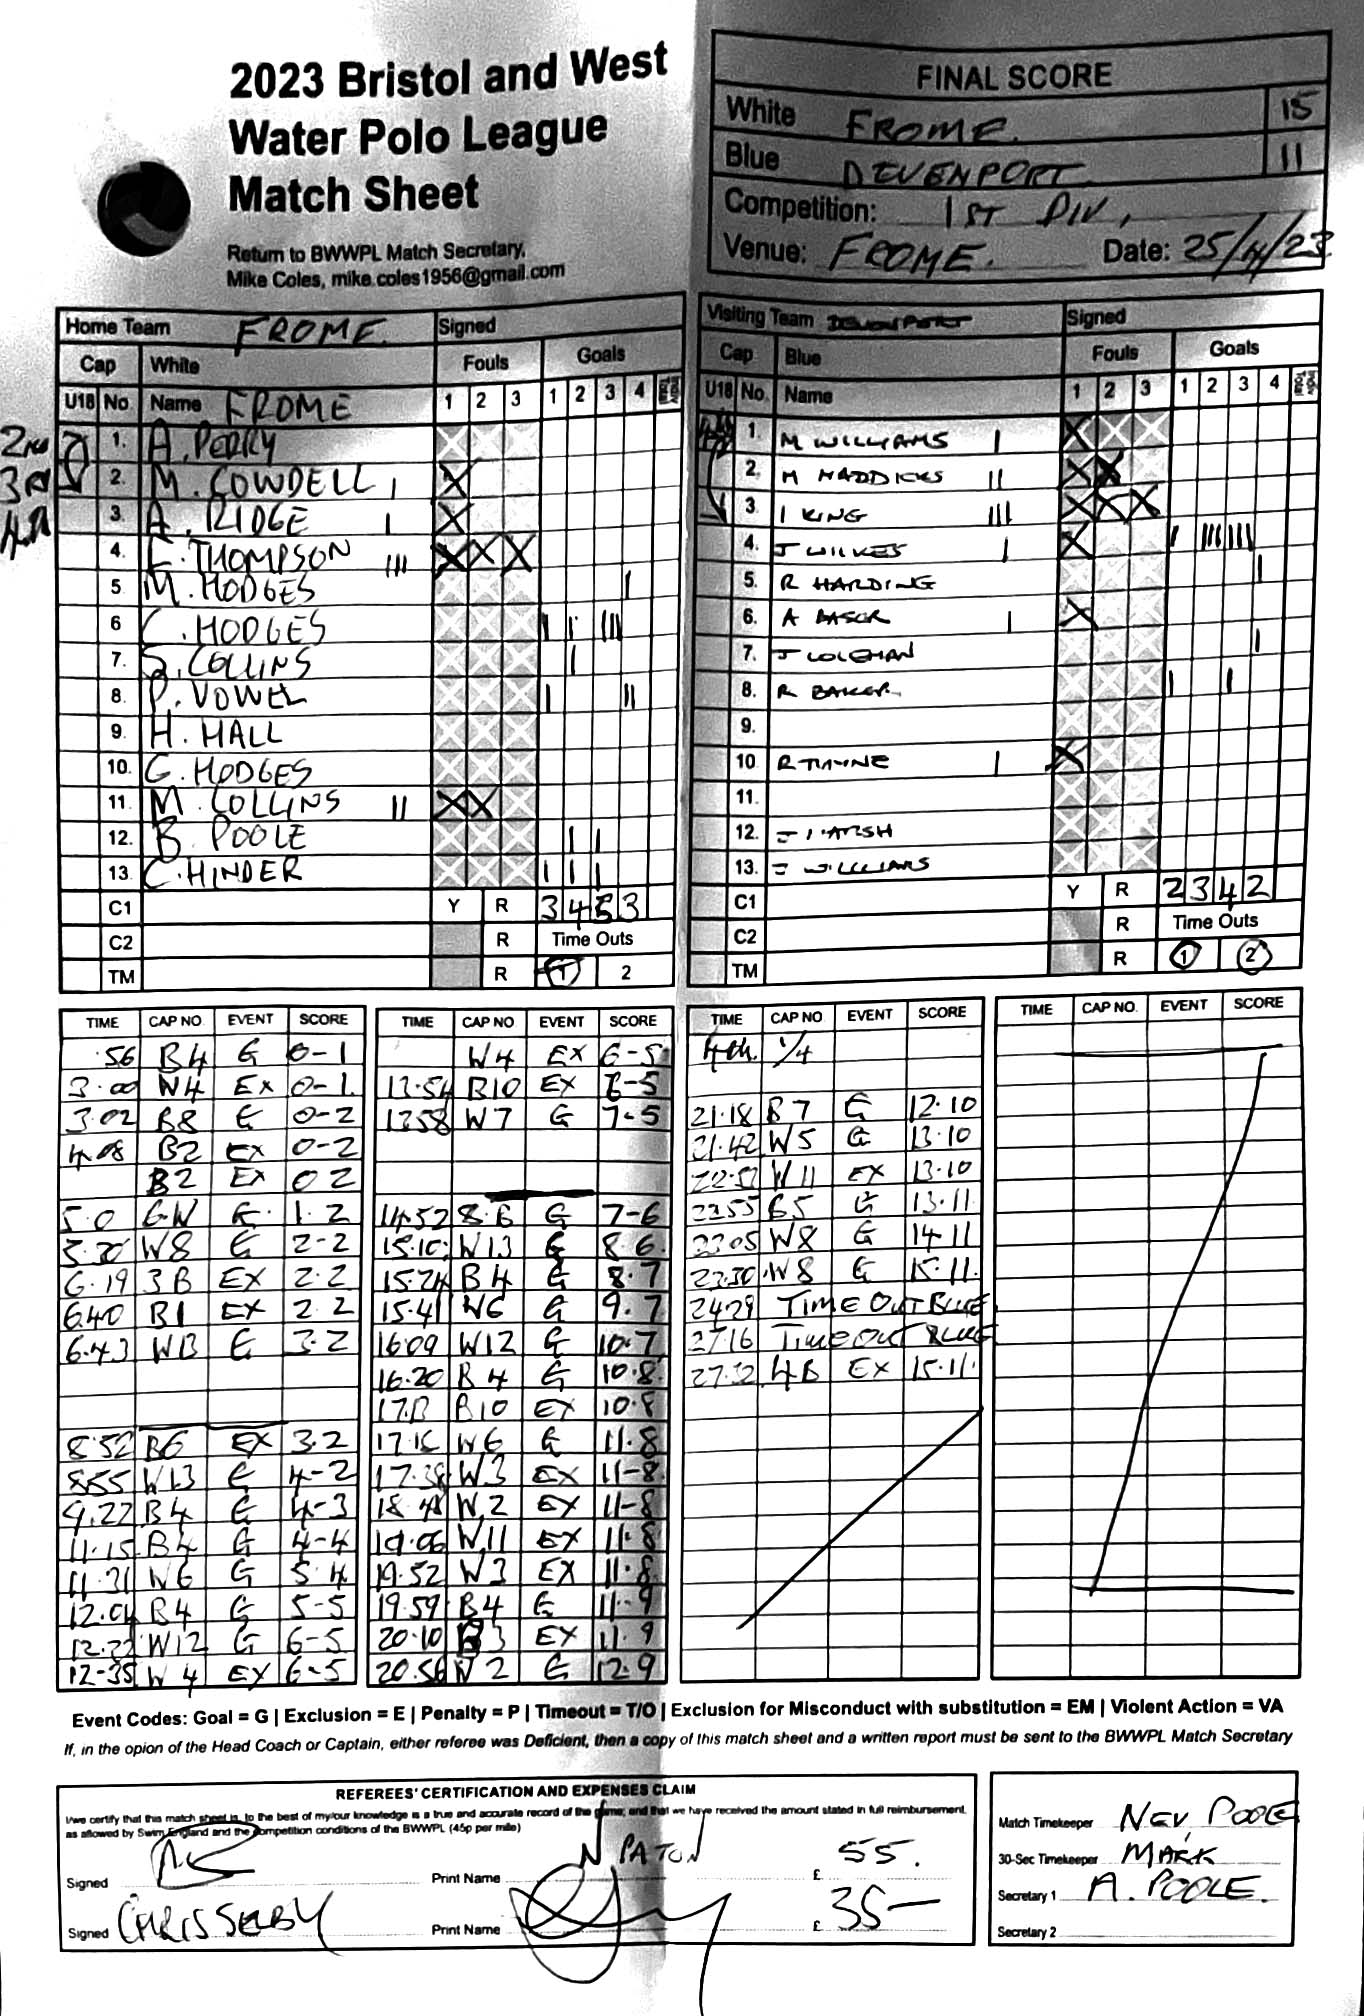 2023 Bristol and West
Water Polo League
Match Sheet
Return to BWWPL Match Secretary,
Mike Coles, mike.coles1956@gmail.com
FINAL SCORE
White FROME. 15
Blue DEVENPORT 11
Competition: 1ST DIV,
Venue: FROME. Date: 25/4/23
Home Team FROME. Signed
Cap White Fouls Goals
U18 No. Name FROME 1 2 3 1 2 3 4
2ND
3RD
4th
1. A. PERRY
2. M. COWDELL
3. A. RIDGE
4. THOMPSON
5 M. HODGES
6 C. HODGES
7. S. COLLINS
8. P. VOWEL
9. H. HALL
10. G. HODGES
11. M. COLLINS
12. B. POOLE
13 C. HINDER
C1 Y R 3 4 5 3
C2 R Time Outs
TM R 1 2
Visiting Team DEVONPORT Signed
Cap Blue Fouls Goals
U18 No. Name 1 2 3 1 2 3 4
1. M WILLIAMS
2. M MADDICKS
3. I KING
4. J WILKES
5. R HARDING
6. A BASER
7. J COLEMAN
8. R BAKER
9.
10. R TIMYNE
11.
12. MARSH
13. J WILLIAMS
C1 Y R 2 3 4 2
C2 R Time Outs
TM R 1 2
TIME CAP NO. EVENT SCORE
.56 B4 G 0-1
3.00 W4 EX 0-1
3.02 B8 G 0-2
4.08 B2 EX 0-2
B2 EX 0 2
5.0 6W G 1.2
5.30 W8 G 2-2
6.19 3B EX 2.2
6.40 B1 EX 2.2
6.43 W13 G 3.2
8.52 B6 EX 3.2
8.55 W13 G 4-2
9.22 B4 G 4-3
11.15 B4 G 4-4
11.31 W6 G 5.4
12.04 B4 G 5-5
12.22 W12 G 6-5
12-35 W4 EX 6-5
TIME CAP NO EVENT SCORE
W4 EX 6-5
13.54 B10 EX 6-5
13.58 W7 G 7-5
14.52 8.B G 7-6
15.10 W13 G 8.6
15.24 B4 G 8.7
15.41 W6 G 9.7
16.09 W12 G 10.7
16.20 B4 G 10.8
17.13 B10 EX 10.8
17.16 W6 G 11.8
17.38 W3 EX 11-8
18.48 W2 EX 11-8
19.06 W11 EX 11.8
19.52 W3 EX 11.8
19.59 B4 G 11-9
20.10 B3 EX 11.9
20.56 W2 G 12.9
TIME CAP NO EVENT SCORE
4th 1/4
21.18 B7 G 12.10
21.42 W5 G 13.10
22.51 W11 EX 13.10
22.55 B5 G 13.11
23.05 W8 G 14.11
23.30 W8 G 15.11
24.29 TIME OUT BLUE
27.16 TIME OUT BLUE
27.32 4B EX 15.11.
TIME CAP NO. EVENT SCORE
Event Codes: Goal = G | Exclusion = E | Penalty = P | Timeout = T/O | Exclusion for Misconduct with substitution = EM | Violent Action = VA
If, in the opion of the Head Coach or Captain, either referee was Deficient, then a copy of this match sheet and a written report must be sent to the BWWPL Match Secretary
REFEREES' CERTIFICATION AND EXPENSES CLAIM
I/we certify that this match sheet is, to the best of my/our knowledge is a true and accurate record of the game; and that we have received the amount stated in full reimbursement,
as allowed by Swim England and the competition conditions of the BWWPL (45p per mile)
Signed Print Name N PATON £ 55.
Signed CHRIS SELBY Print Name £ 35-
Match Timekeeper NEV, POOLE
30-Sec Timekeeper MARK
Secretary 1 A. POOLE.
Secretary 2